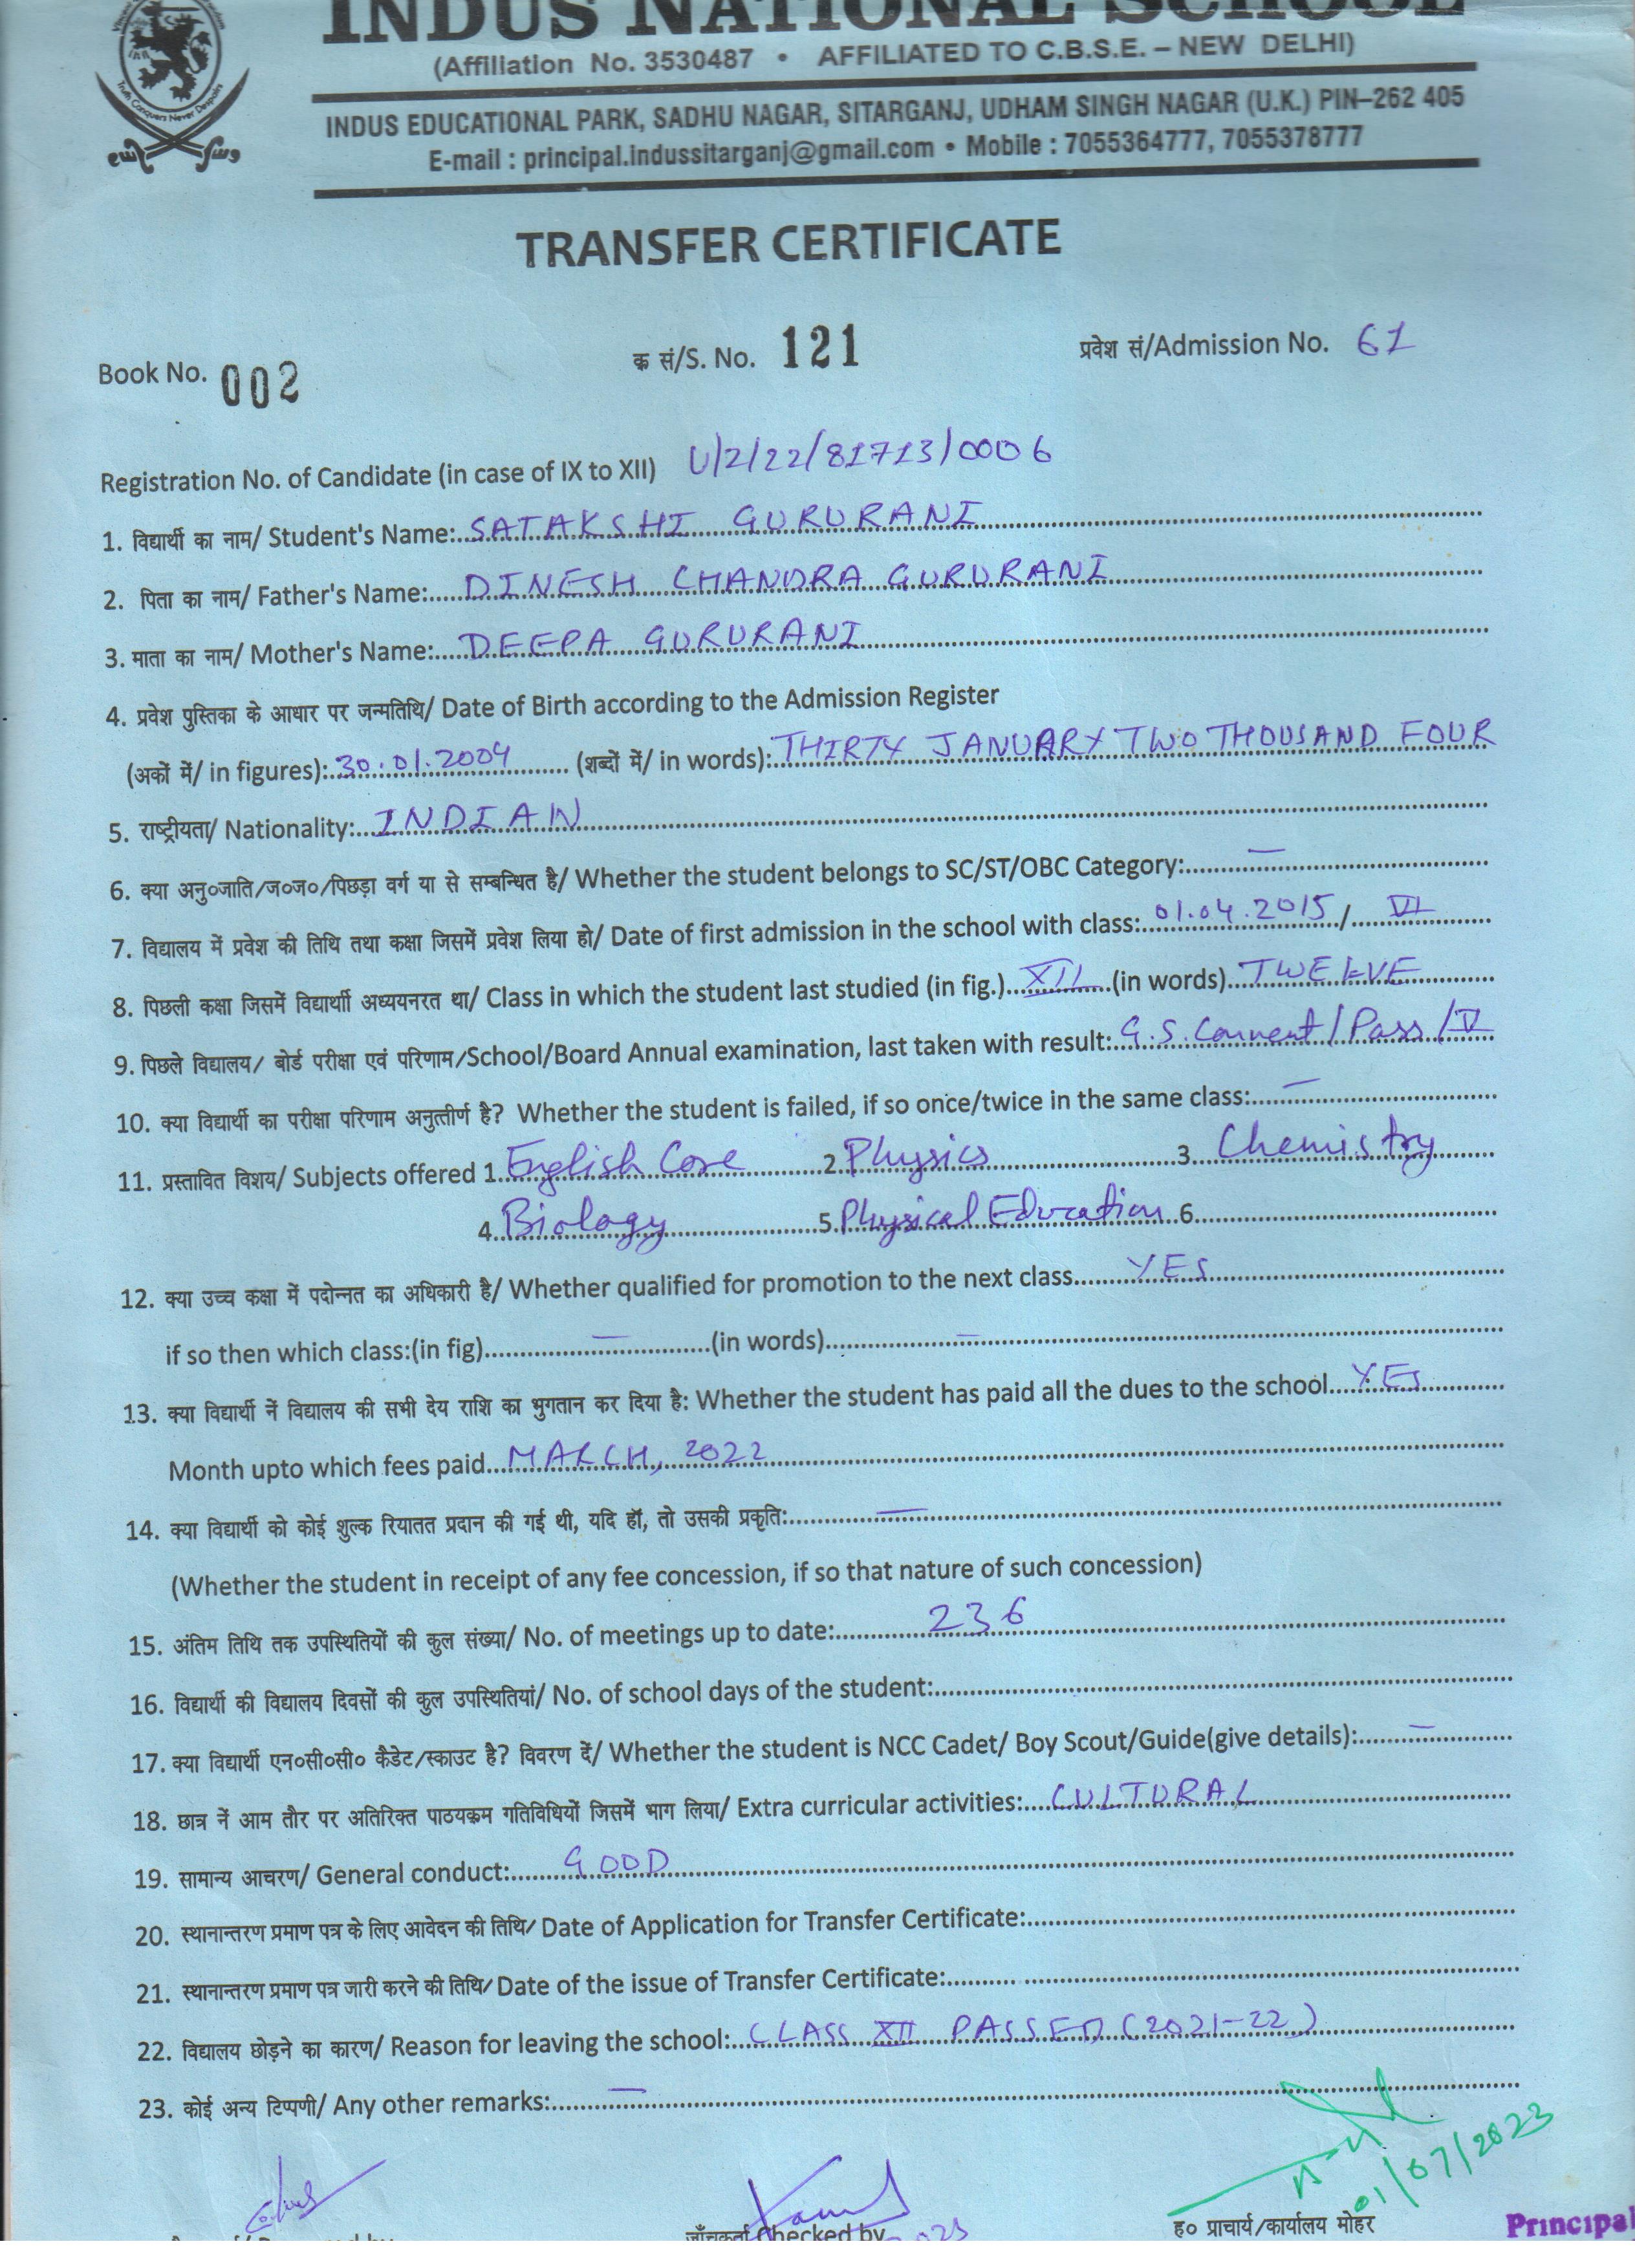 INDUS NATIONAL SCHOOL
(Affiliation No. 3530487 • AFFILIATED TO C.B.S.E. – NEW DELHI)
INDUS EDUCATIONAL PARK, SADHU NAGAR, SITARGANJ, UDHAM SINGH NAGAR (U.K.) PIN–262 405
E-mail : principal.indussitarganj@gmail.com • Mobile : 7055364777, 7055378777
Truth Conquers Never Despairs
TRANSFER CERTIFICATE
Book No. 002 क्र सं/S. No. 121 प्रवेश सं/Admission No. 61
Registration No. of Candidate (in case of IX to XII) U/2/22/81713/0006
1. विद्यार्थी का नाम/ Student's Name: SATAKSHI GURURANI
2. पिता का नाम/ Father's Name: DINESH CHANDRA GURURANI
3. माता का नाम/ Mother's Name: DEEPA GURURANI
4. प्रवेश पुस्तिका के आधार पर जन्मतिथि/ Date of Birth according to the Admission Register
(अकों में/ in figures): 30.01.2004 (शब्दों में/ in words): THIRTY JANUARY TWO THOUSAND FOUR
5. राष्ट्रीयता/ Nationality: INDIAN
6. क्या अनु०जाति/ज०ज०/पिछड़ा वर्ग या से सम्बन्धित है/ Whether the student belongs to SC/ST/OBC Category: —
7. विद्यालय में प्रवेश की तिथि तथा कक्षा जिसमें प्रवेश लिया हो/ Date of first admission in the school with class: 01.04.2015 / VI
8. पिछली कक्षा जिसमें विद्यार्थी अध्ययनरत था/ Class in which the student last studied (in fig.) XII (in words) TWELVE
9. पिछले विद्यालय/ बोर्ड परीक्षा एवं परिणाम/School/Board Annual examination, last taken with result: G.S. Convent / Pass / V
10. क्या विद्यार्थी का परीक्षा परिणाम अनुत्तीर्ण है? Whether the student is failed, if so once/twice in the same class: —
11. प्रस्तावित विशय/ Subjects offered 1. English Core 2. Physics 3. Chemistry
4. Biology 5. Physical Education 6.
12. क्या उच्च कक्षा में पदोन्नत का अधिकारी है/ Whether qualified for promotion to the next class YES
if so then which class:(in fig) — (in words) —
13. क्या विद्यार्थी नें विद्यालय की सभी देय राशि का भुगतान कर दिया है: Whether the student has paid all the dues to the school YES
Month upto which fees paid MARCH, 2022
14. क्या विद्यार्थी को कोई शुल्क रियातत प्रदान की गई थी, यदि हॉ, तो उसकी प्रकृति: —
(Whether the student in receipt of any fee concession, if so that nature of such concession)
15. अंतिम तिथि तक उपस्थितियों की कुल संख्या/ No. of meetings up to date: 236
16. विद्यार्थी की विद्यालय दिवसों की कुल उपस्थितियां/ No. of school days of the student:
17. क्या विद्यार्थी एन०सी०सी० कैडेट/स्काउट है? विवरण दें/ Whether the student is NCC Cadet/ Boy Scout/Guide(give details): —
18. छात्र नें आम तौर पर अतिरिक्त पाठयक्रम गतिविधियों जिसमें भाग लिया/ Extra curricular activities: CULTURAL
19. सामान्य आचरण/ General conduct: GOOD
20. स्थानान्तरण प्रमाण पत्र के लिए आवेदन की तिथि/ Date of Application for Transfer Certificate:
21. स्थानान्तरण प्रमाण पत्र जारी करने की तिथि/ Date of the issue of Transfer Certificate:
22. विद्यालय छोड़ने का कारण/ Reason for leaving the school: CLASS XII PASSED (2021-22)
23. कोई अन्य टिप्पणी/ Any other remarks: —
01/07/2023
जाँचकर्ता Checked by ह० प्राचार्य/कार्यालय मोहर Principal